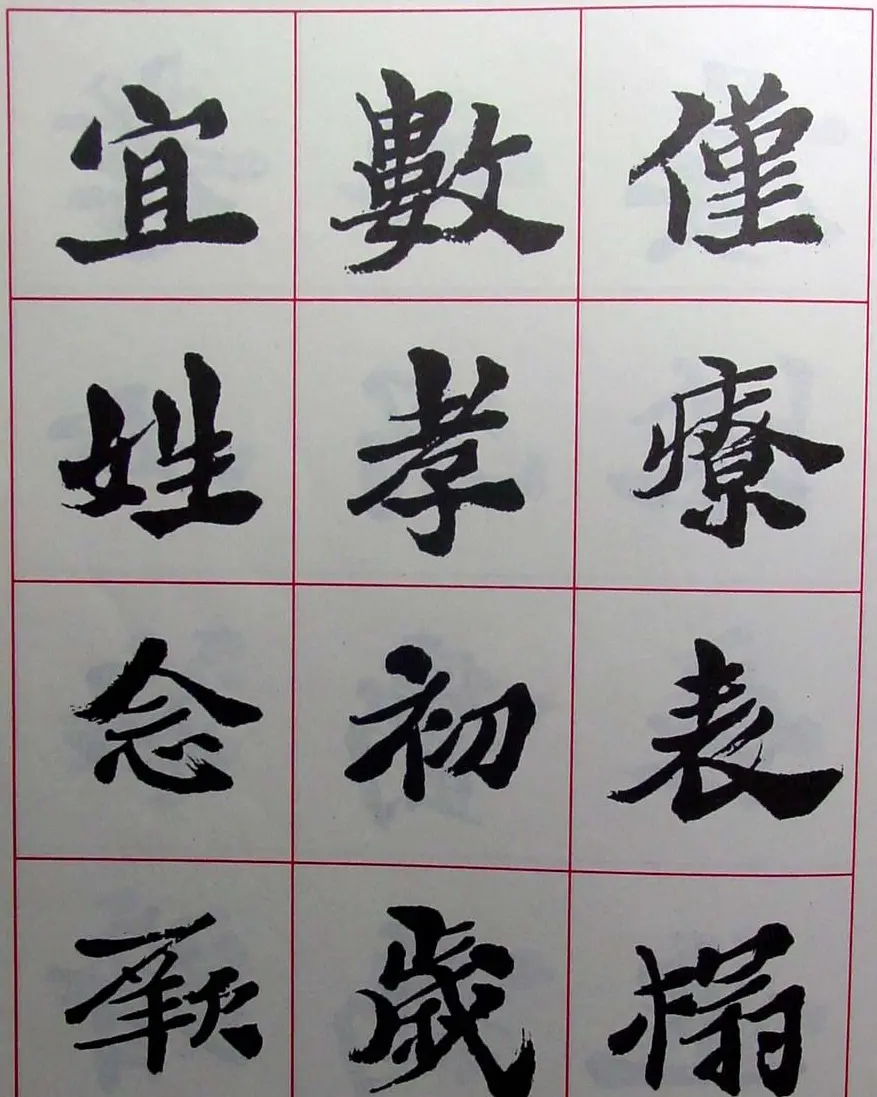 僅療表榻
數孝初歲
宜姓念厥